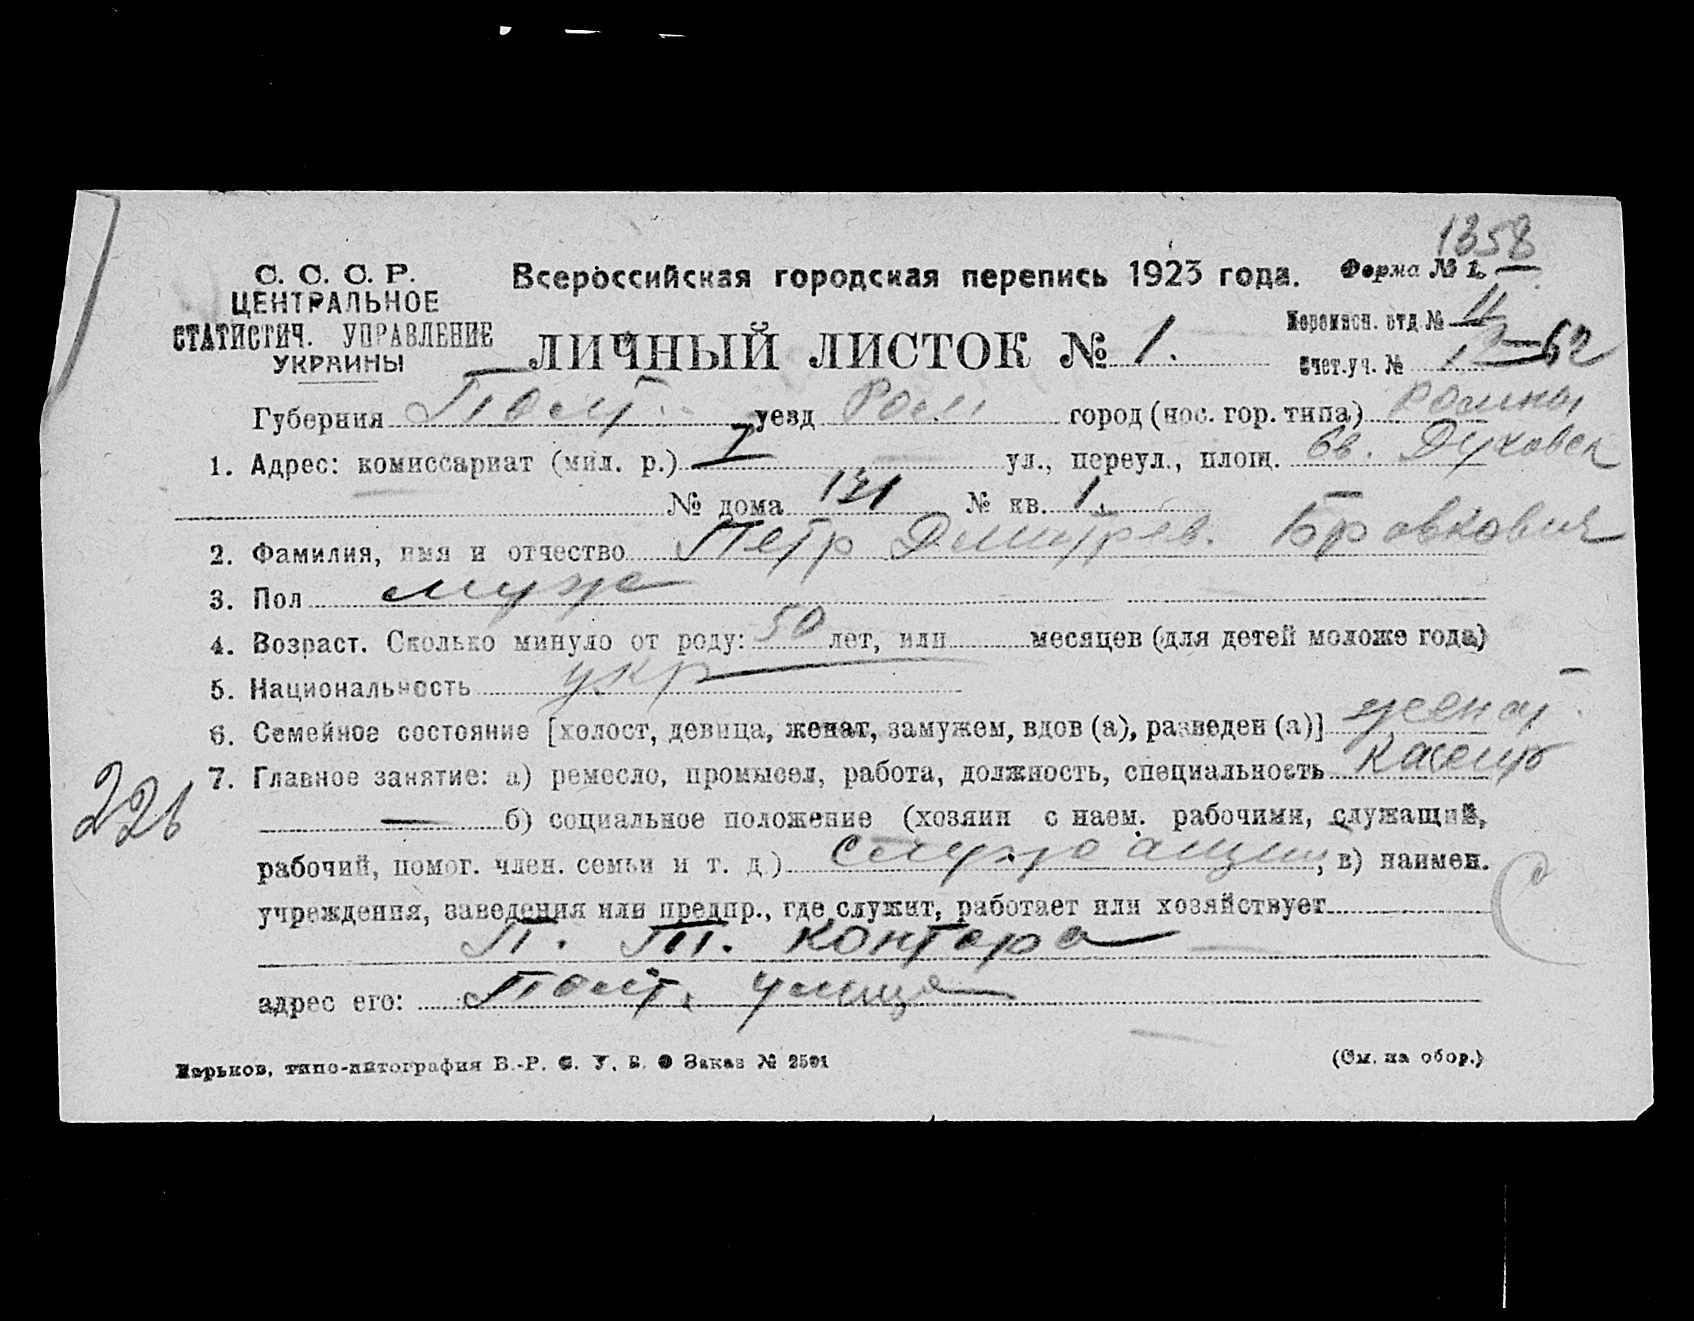 1358
С. С. С. Р.
ЦЕНТРАЛЬНОЕ
СТАТИСТИЧ. УПРАВЛЕНИЕ
УКРАИНЫ
Всероссийская городская перепись 1923 года.
Форма № 1.
ЛИЧНЫЙ ЛИСТОК № 1.
Переписн. отд. № 11
Счет. уч. № 62
Губерния Полт. уезд Ром город (пос. гор. типа) Ромны
1. Адрес: комиссариат (мил. р.) I ул., переул., площ. Духовск
№ дома 121 № кв. 1.
2. Фамилия, имя и отчество Петр Дмитрев. Бровкович
3. Пол муж
4. Возраст. Сколько минуло от роду: 50 лет, или месяцев (для детей моложе года)
5. Национальность укр
6. Семейное состояние [холост, девица, женат, замужем, вдов (а), разведен (а)] женат
7. Главное занятие: а) ремесло, промысел, работа, должность, специальность кассир
226
— б) социальное положение (хозяин с наем. рабочими, служащий,
рабочий, помог. член. семьи и т. д.) служащий, в) наимен.
учреждения, заведения или предпр., где служит, работает или хозяйствует
П. Т. контора
адрес его: Полт. улица
Харьков, типо-литография В.-Р. С. У. В. О Заказ № 2591
(См. на обор.)